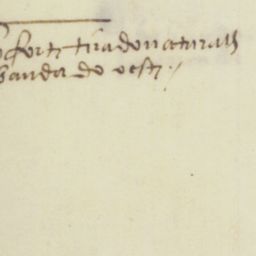 forte tirado natural
banda do oeste